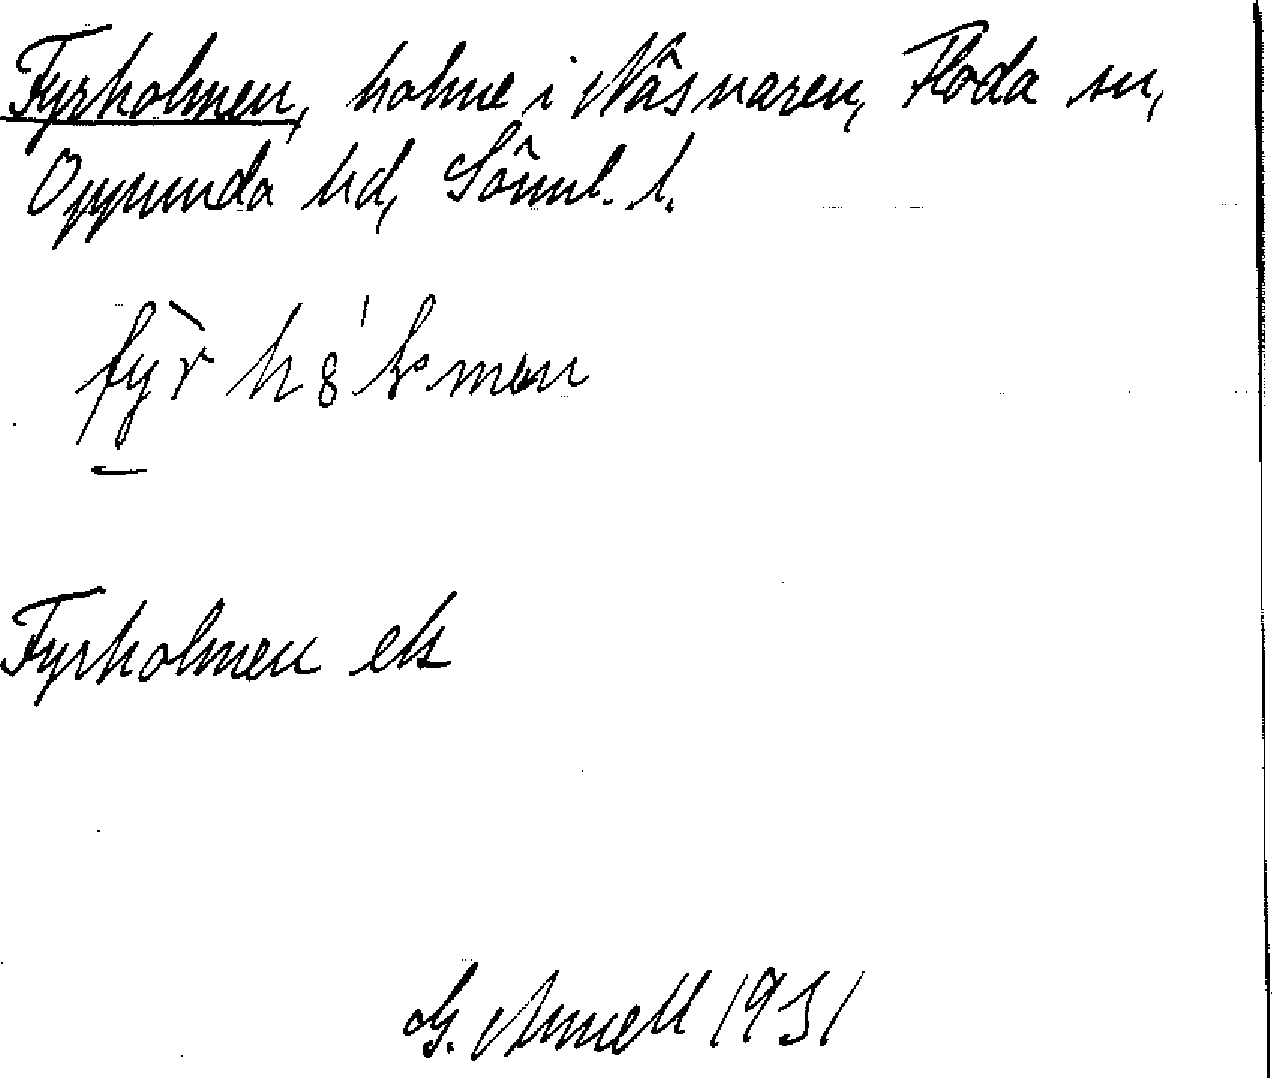 Fyrholmen, holme i Näsnaren, Floda sn,
Oppunda hd, Sörml. l.
fỳ̠r hȣ́lmən
Fyrholmen ek
G. Annell 1931